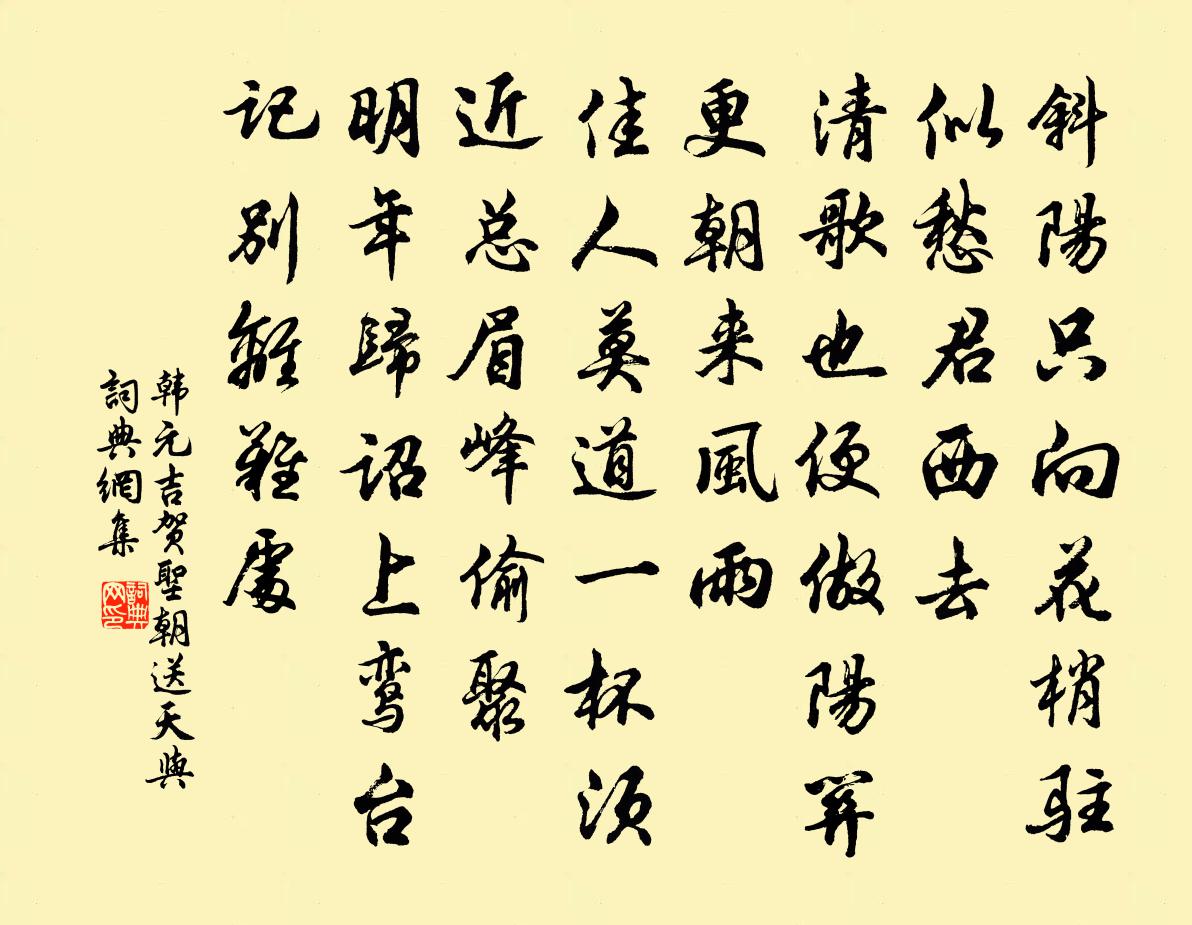 斜陽只向花梢駐
似愁君西去
清歌也便做陽關
更朝来風雨
佳人莫道一杯须
近总眉峰偷聚
明年歸詔上鸾台
記别離難處
韩元吉贺聖朝送天與
詞典網集
詞典
网印